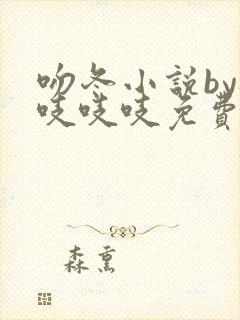 吻冬小説by
吱吱吱免費
森熏